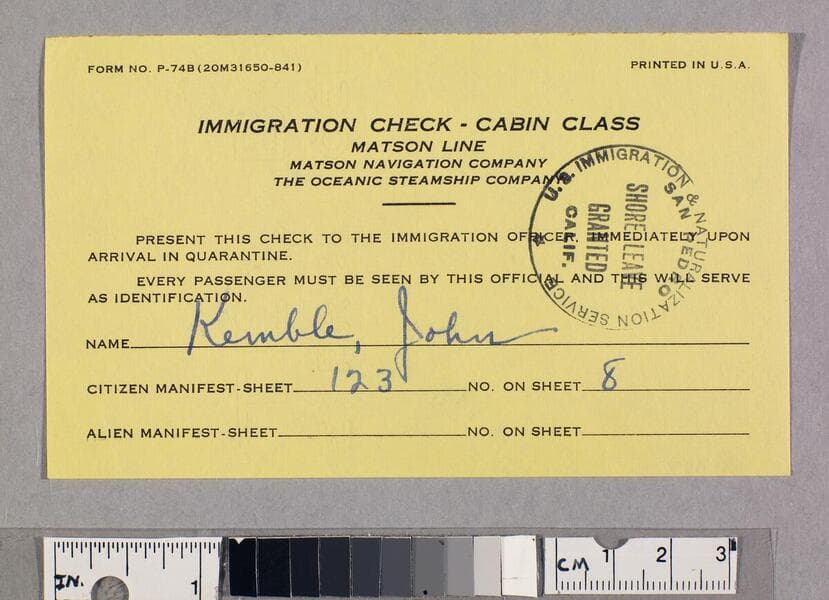 FORM NO. P-74B (20M31650-841)
PRINTED IN U.S.A.
IMMIGRATION CHECK - CABIN CLASS
MATSON LINE
MATSON NAVIGATION COMPANY
THE OCEANIC STEAMSHIP COMPANY
U.S. IMMIGRATION & NATURALIZATION SERVICE
SAN PEDRO
SHORE LEAVE
GRANTED
CALIF.
PRESENT THIS CHECK TO THE IMMIGRATION OFFICER, IMMEDIATELY UPON
ARRIVAL IN QUARANTINE.
EVERY PASSENGER MUST BE SEEN BY THIS OFFICIAL AND THIS WILL SERVE
AS IDENTIFICATION.
NAME Kemble, John
CITIZEN MANIFEST-SHEET 123 NO. ON SHEET 8
ALIEN MANIFEST-SHEET NO. ON SHEET
IN. 1
CM 1 2 3